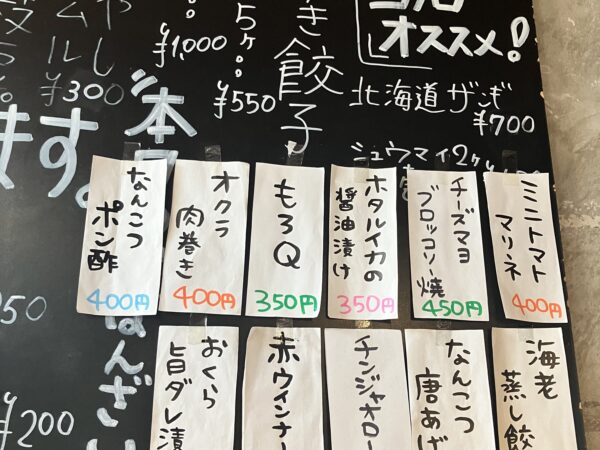 ¥1,000
ルし
¥300
き餃子
5ケ
¥550
オススメ!
北海道ザンギ
¥700
シュウマイ2ケ
ます。
本
なんこつ
ポン酢
400円
オクラ
肉巻き
400円
もろQ
350円
ホタルイカの
醤油漬け
350円
チーズマヨ
ブロッコリー焼
450円
ミニトマト
マリネ
400円
¥200
おくら
旨ダレ漬
赤ウインナー
チンジャオロー
なんこつ
唐あげ
海老
蒸し餃